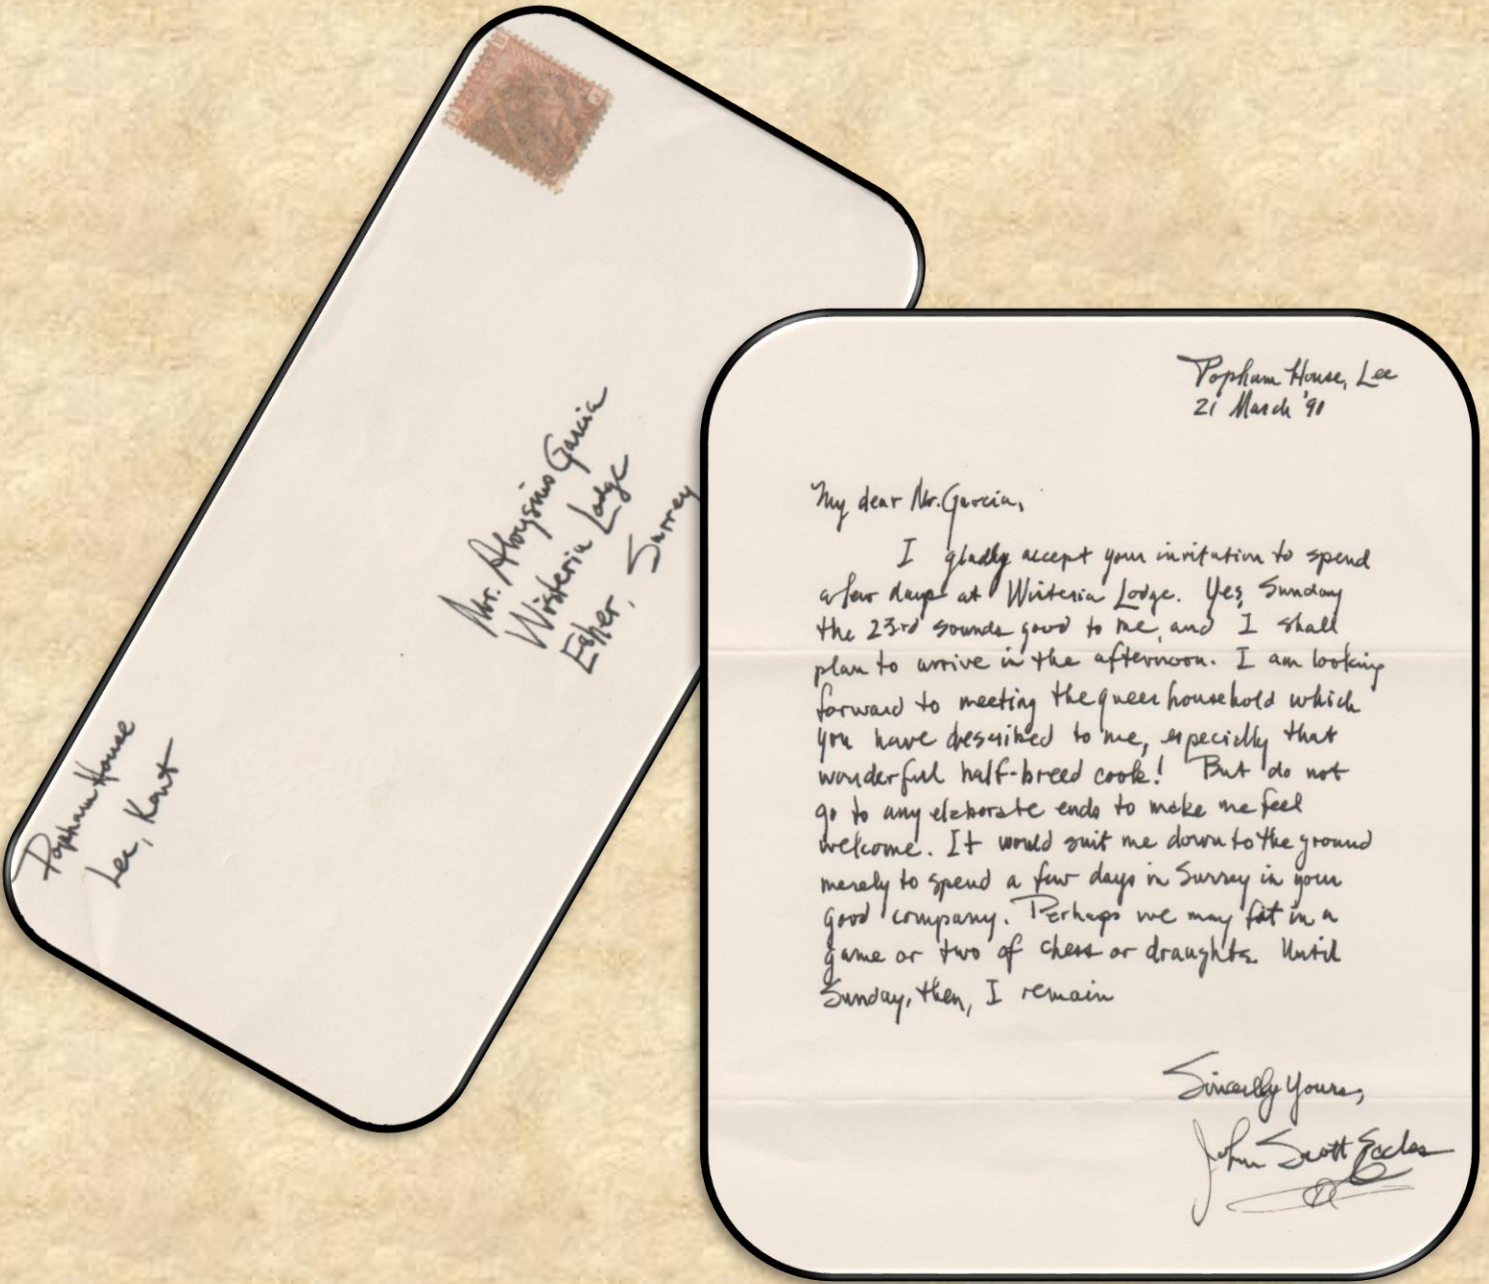 Mr. Aloysius Garcia
Wisteria Lodge
Esher, Surrey
Popham House
Lee, Kent
Popham House, Lee
21 March '90
My dear Mr. Garcia,
I gladly accept your invitation to spend
a few days at Wisteria Lodge. Yes, Sunday
the 23rd sounds good to me, and I shall
plan to arrive in the afternoon. I am looking
forward to meeting the queer household which
you have described to me, especially that
wonderful half-breed cook! But do not
go to any elaborate ends to make me feel
welcome. It would suit me down to the ground
merely to spend a few days in Surrey in your
good company. Perhaps we may fit in a
game or two of chess or draughts. Until
Sunday, then, I remain
Sincerely Yours,
John Scott Eccles